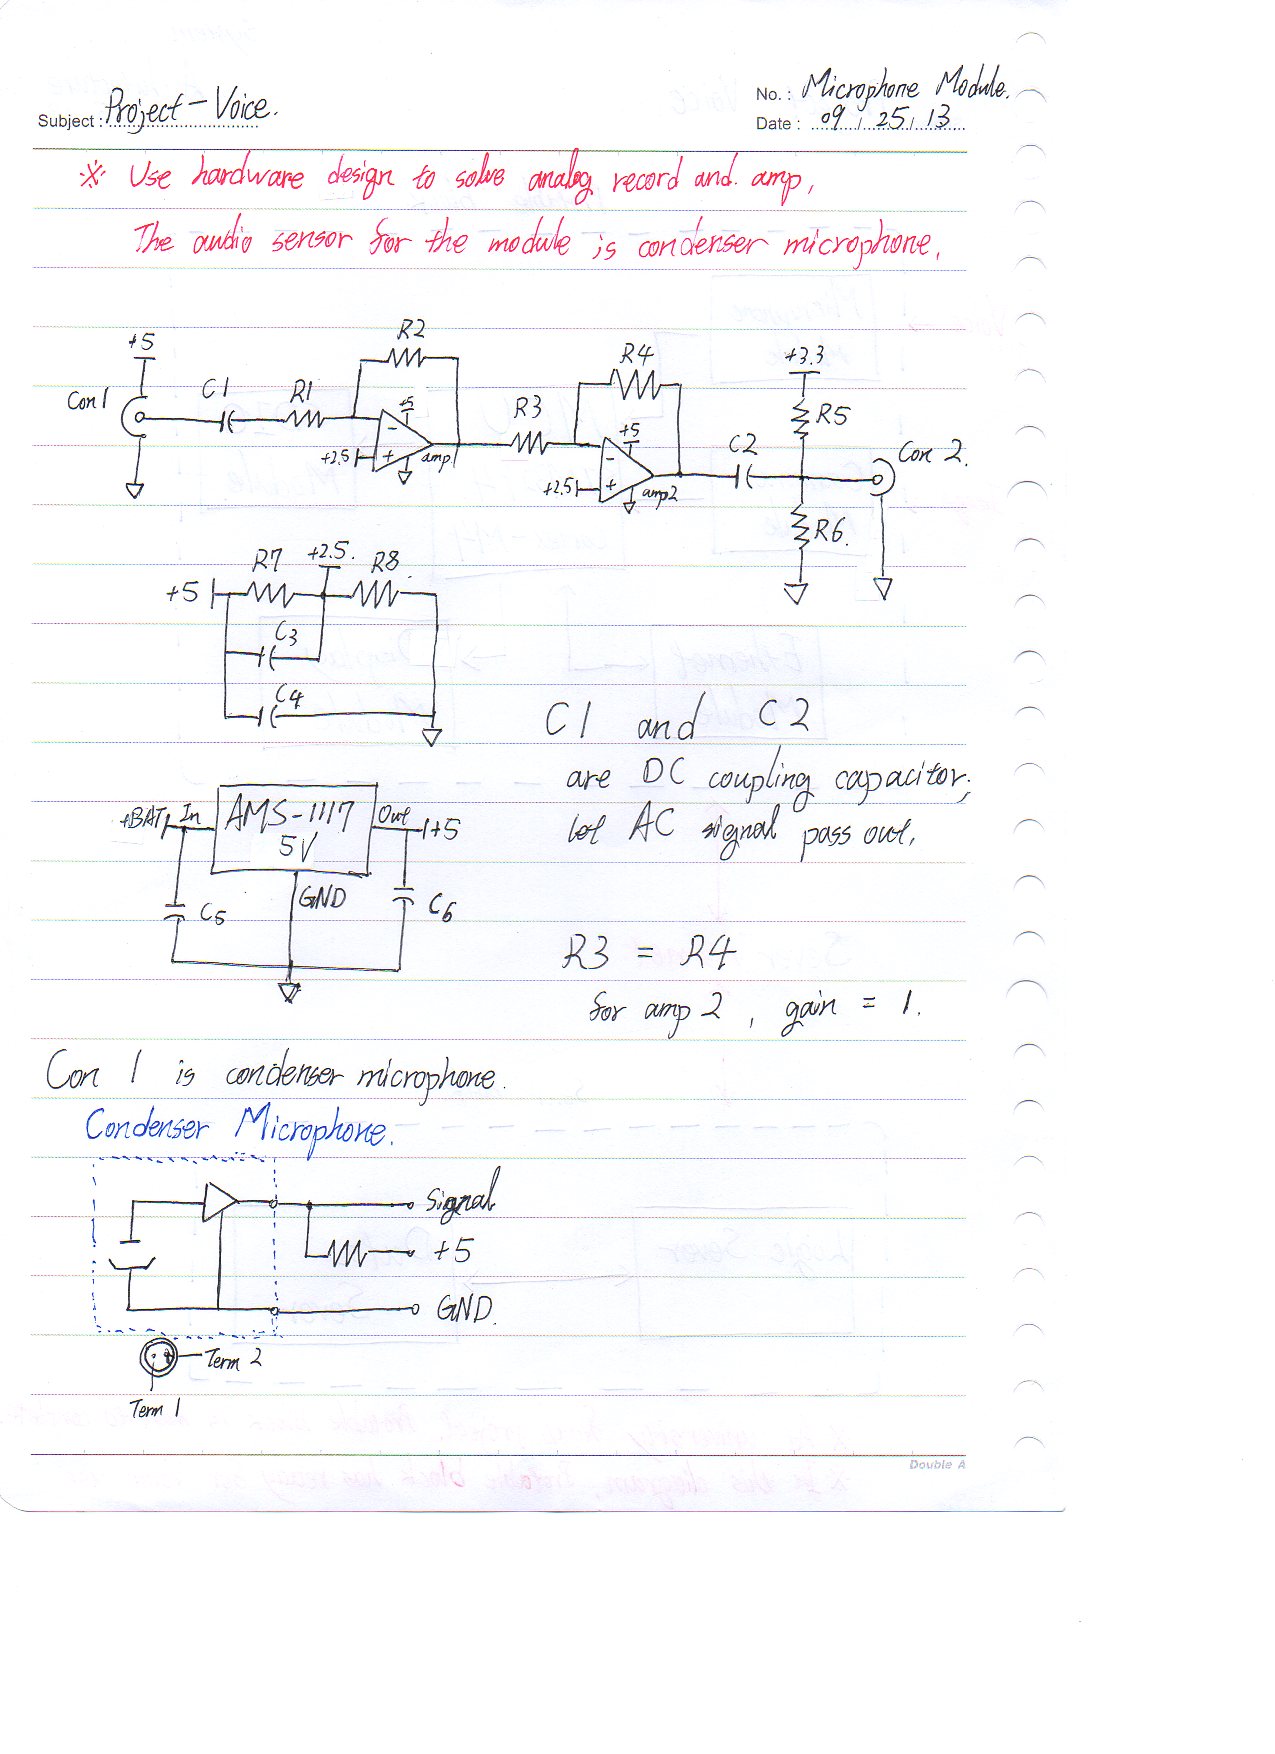 Subject : Project - Voice.
No. : Microphone Module.
Date : 09 / 25 / 13
※ Use hardware design to solve analog record and. amp,
The audio sensor for the module is condenser microphone.
+5
Con 1
C1
R1
R2
+5
-
+
+2.5
amp1
R3
R4
+5
-
+
+2.5
amp2
C2
+3.3
R5
R6.
Con 2.
+5
R7
+2.5.
R8
C3
C4
C1 and C2
are DC coupling capacitor,
let AC signal pass out,
+BAT
In
AMS-1117
5V
Out
+5
GND
C5
C6
R3 = R4
for amp 2 , gain = 1.
Con 1 is condenser microphone.
Condenser Microphone.
Signal
+5
GND.
Term 2
Term 1
Double A